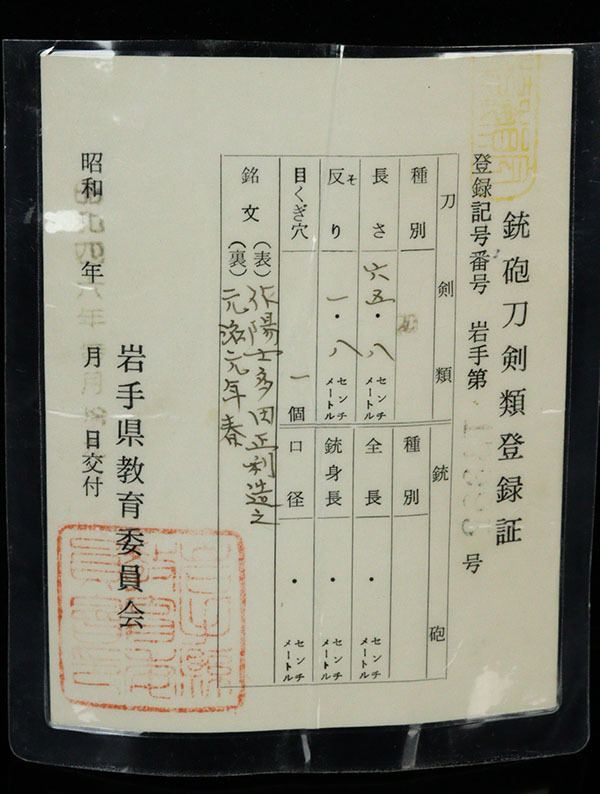 銃砲刀剣類登録証
登録記号番号 岩手第 号
刀剣類 銃砲
種別 種別
長さ 六五・八 センチメートル 全長 ・ センチメートル
反り そ 一・八 センチメートル 銃身長 ・ センチメートル
目くぎ穴 一個 口径 ・ センチメートル
銘文 (表) 作陽士多田正利造之
(裏) 元治元年春
昭和 年 月 日交付
岩手県教育委員会